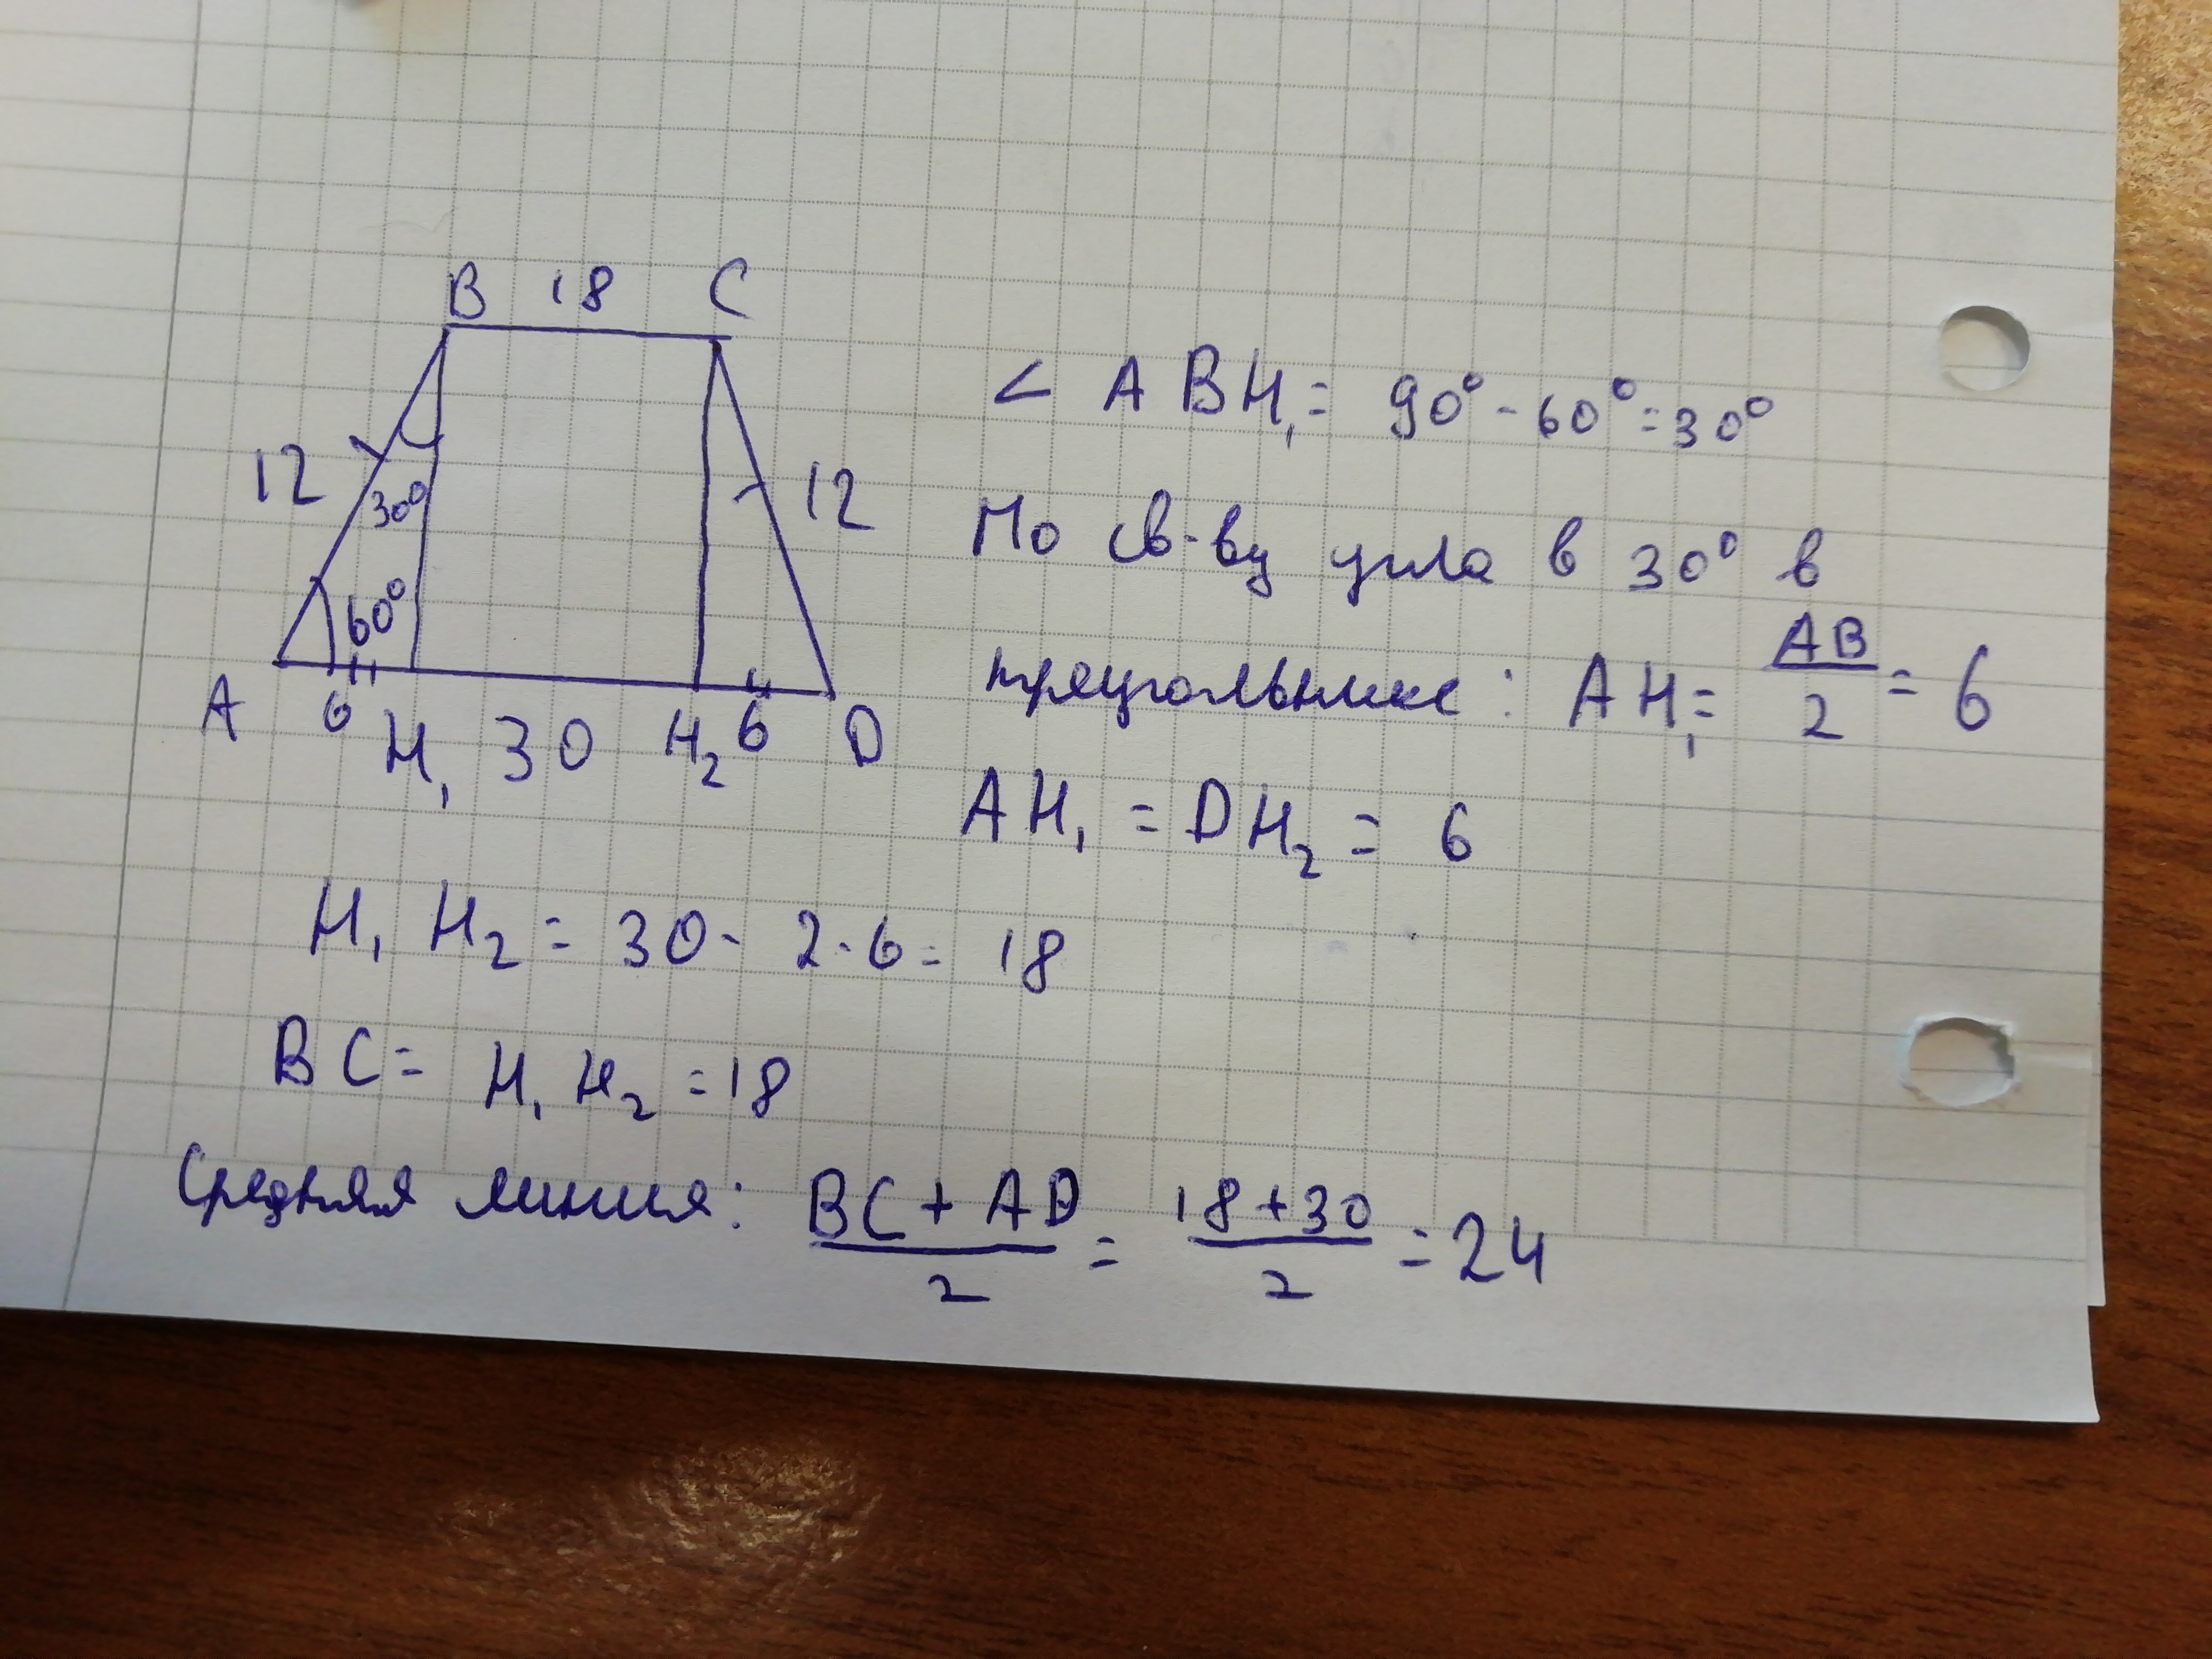 B 18 C
12 30° 12
60°
A 6 H₁ 30 H₂ 6 D
< ABH₁ = 90° - 60° = 30°
По св-ву угла в 30° в
треугольнике: AH₁ = AB/2 = 6
AH₁ = DH₂ = 6
H₁ H₂ = 30 - 2·6 = 18
BC = H₁ H₂ = 18
Средняя линия: BC + AD/2 = 18+30/2 = 24